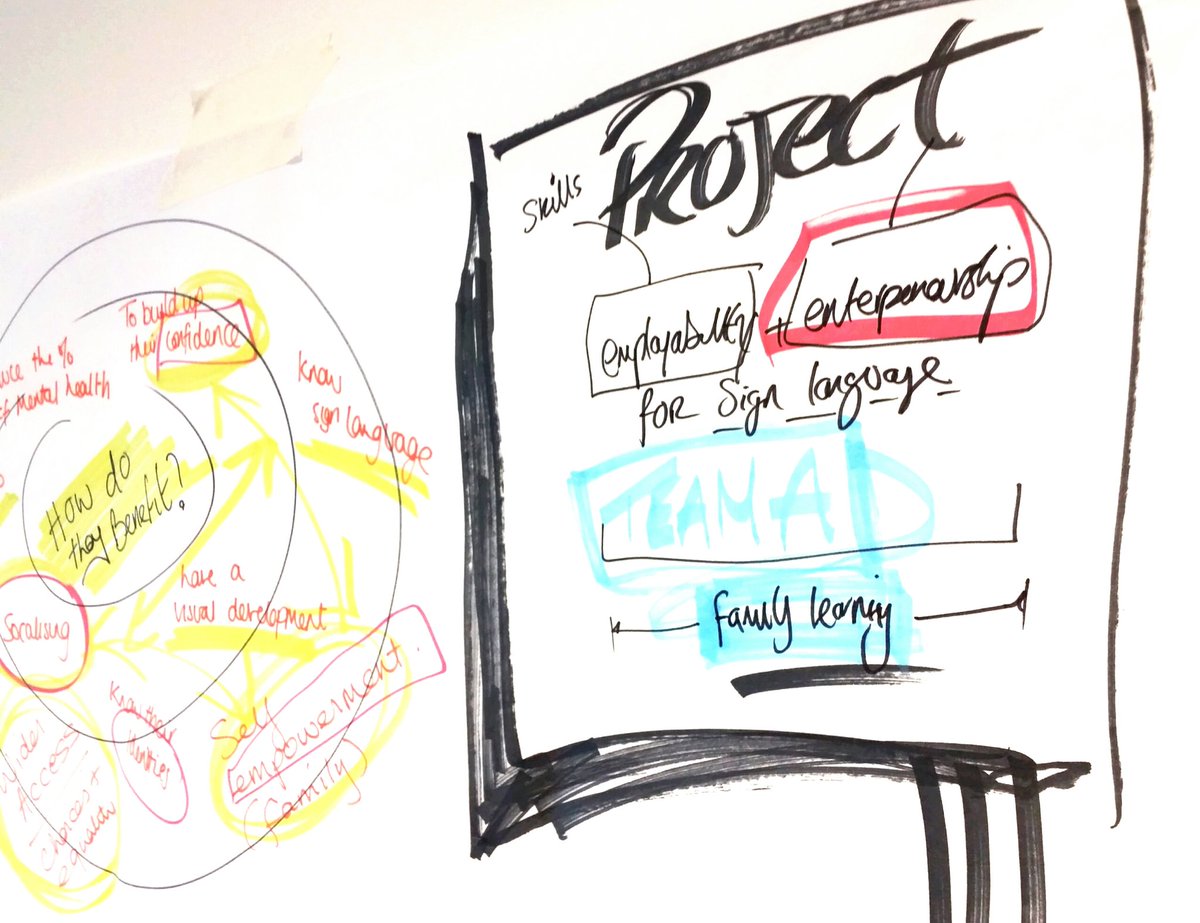 Project
skills
employability + enterpenarship
for Sign language
TEAM A
family learning
To build up
their confidence
the %
of mental health
know
sign language
How do
they Benefit?
have a
visual development
Socalising
know their
identities
Self
empowerment.
(family)
Wider
Access
choices +